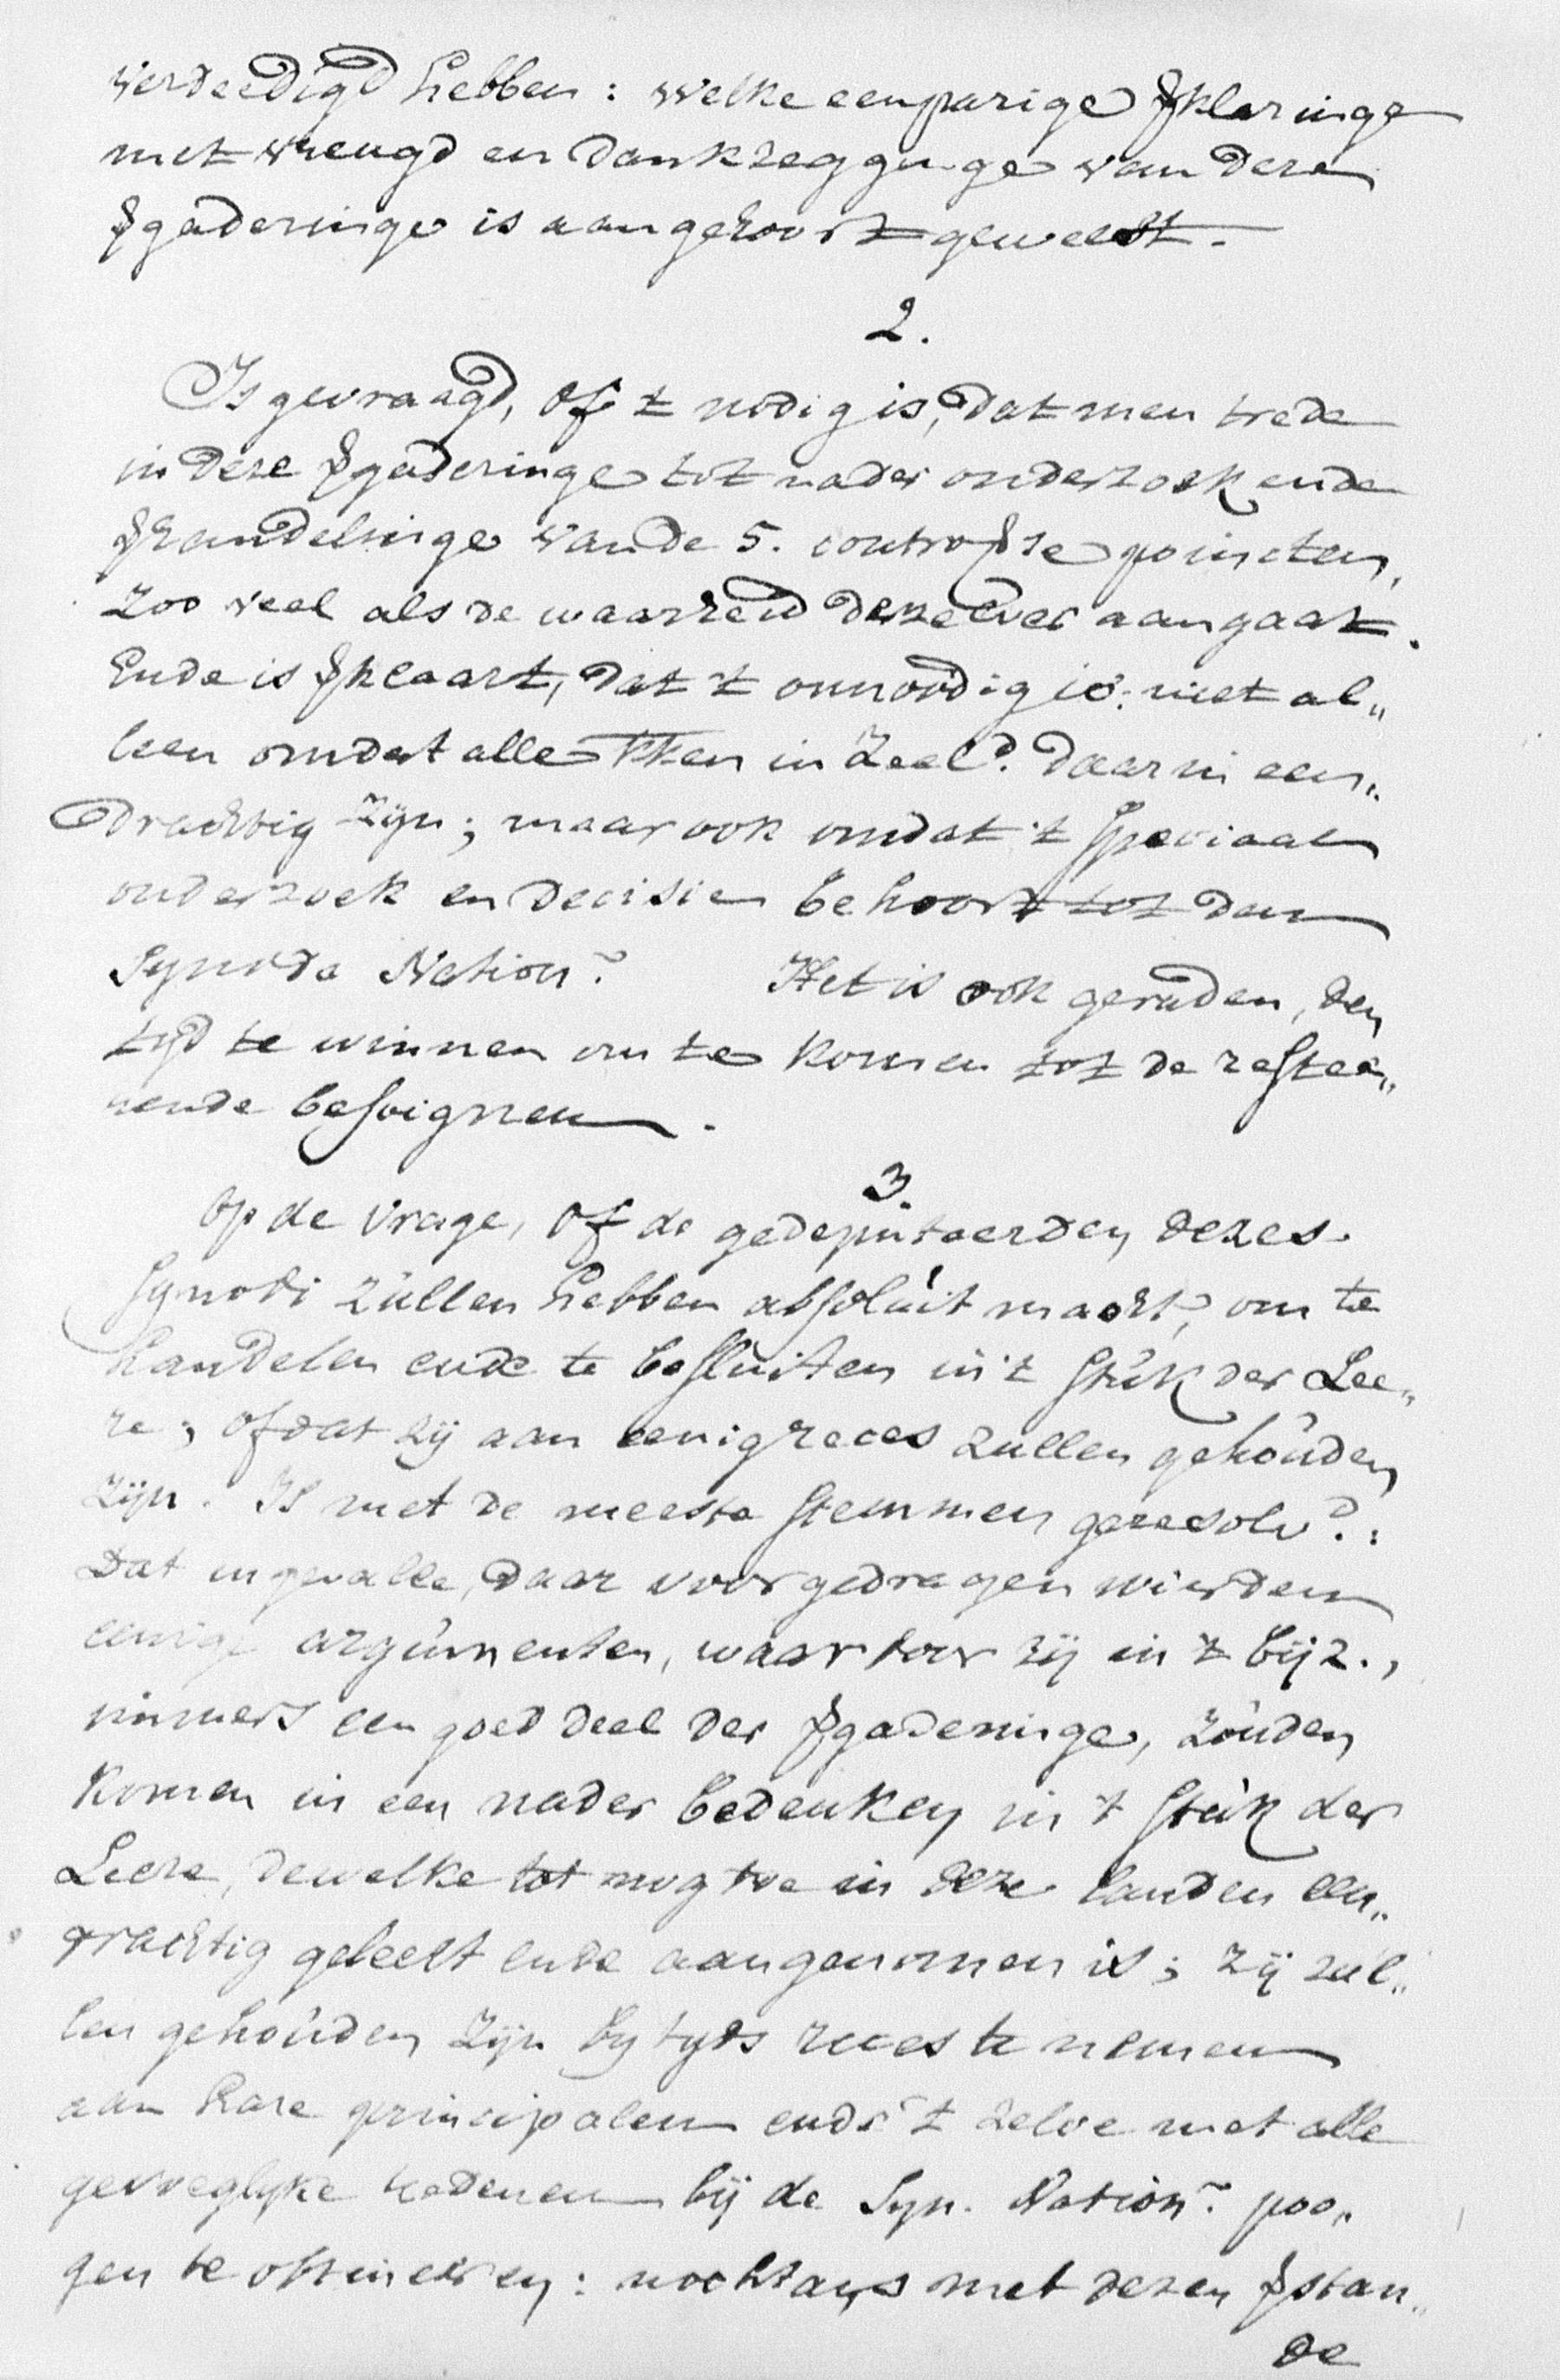 verdeedigd hebben: welke eenparige Vklaringe
met vreugd en dankzegginge van deze
Vgaderinge is aangehoort geweest.
2.
Is gevraagd, of 't nodig is, dat men trede
in deze Vgaderinge tot nader onderzoek ende
Vhandelinge van de 5. controVse poincten,
zoo veel als de waarheid dezelver aangaat.
Ende is Vklaart, dat 't onnoodig is: niet al„
leen omdat alle KKen in Zeeld. daar in een„
drachtig zijn; maar ook omdat 't speciaal
onderzoek en decisie behoort tot den
Synode Nation. Het is ook geraden, den
tijd te winnen om te komen tot de restee„
rende besoignen.
3.
Op de vrage, of de gedeputeerden dezes
Synodi zullen hebben absoluit macht, om te
handelen ende te besluiten in 't stuk der Lee„
re; of dat zij aan eenig reces zullen gehouden
zijn. Is met de meeste stemmen geresolvd.:
Dat ingevalle, daar voorgedragen wierden
eenige argumenten, waar door zij in 't bijz.,
immers een goed deel der Vgaderinge, zouden
komen in een nader bedenken in 't stuk der
Leere, dewelke tot nog toe in deze landen een„
drachtig geleert ende aangenomen is; zij zul„
len gehouden zijn by tyds reces te nemen
aan hare principalen ende 't zelve met alle
gevoeglyke redenen bij de Syn. Nation. poo„
gen te obtineren: nochtans met dezen Vstan„
de